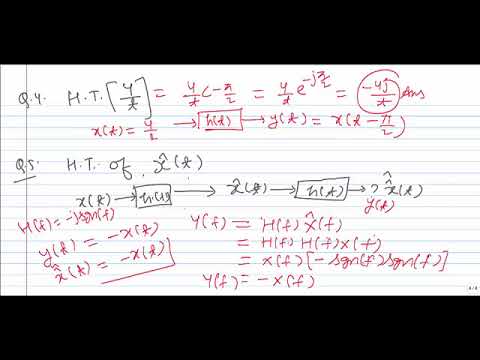 Q.4. H.T. [4/t] = 4/t ∠-π/2 = 4/t e^{-jπ/2} = -4j/t Ans
x(t) = 4/t → h(t) → y(t) = x(t - π/2)
Q.5. H.T. of x̂(t)
x(t) → h(t) → x̂(t) → h(t) → x̂̂(t)
y(t)
H(f) = -jsgn(f)
Y(f) = H(f) X̂(f)
y(t) = -x(t)
= H(f) H(f) x(f)
x̂̂(t) = -x(t)
= x(f) [- sgn(f) sgn(f)]
Y(f) = - x(f)